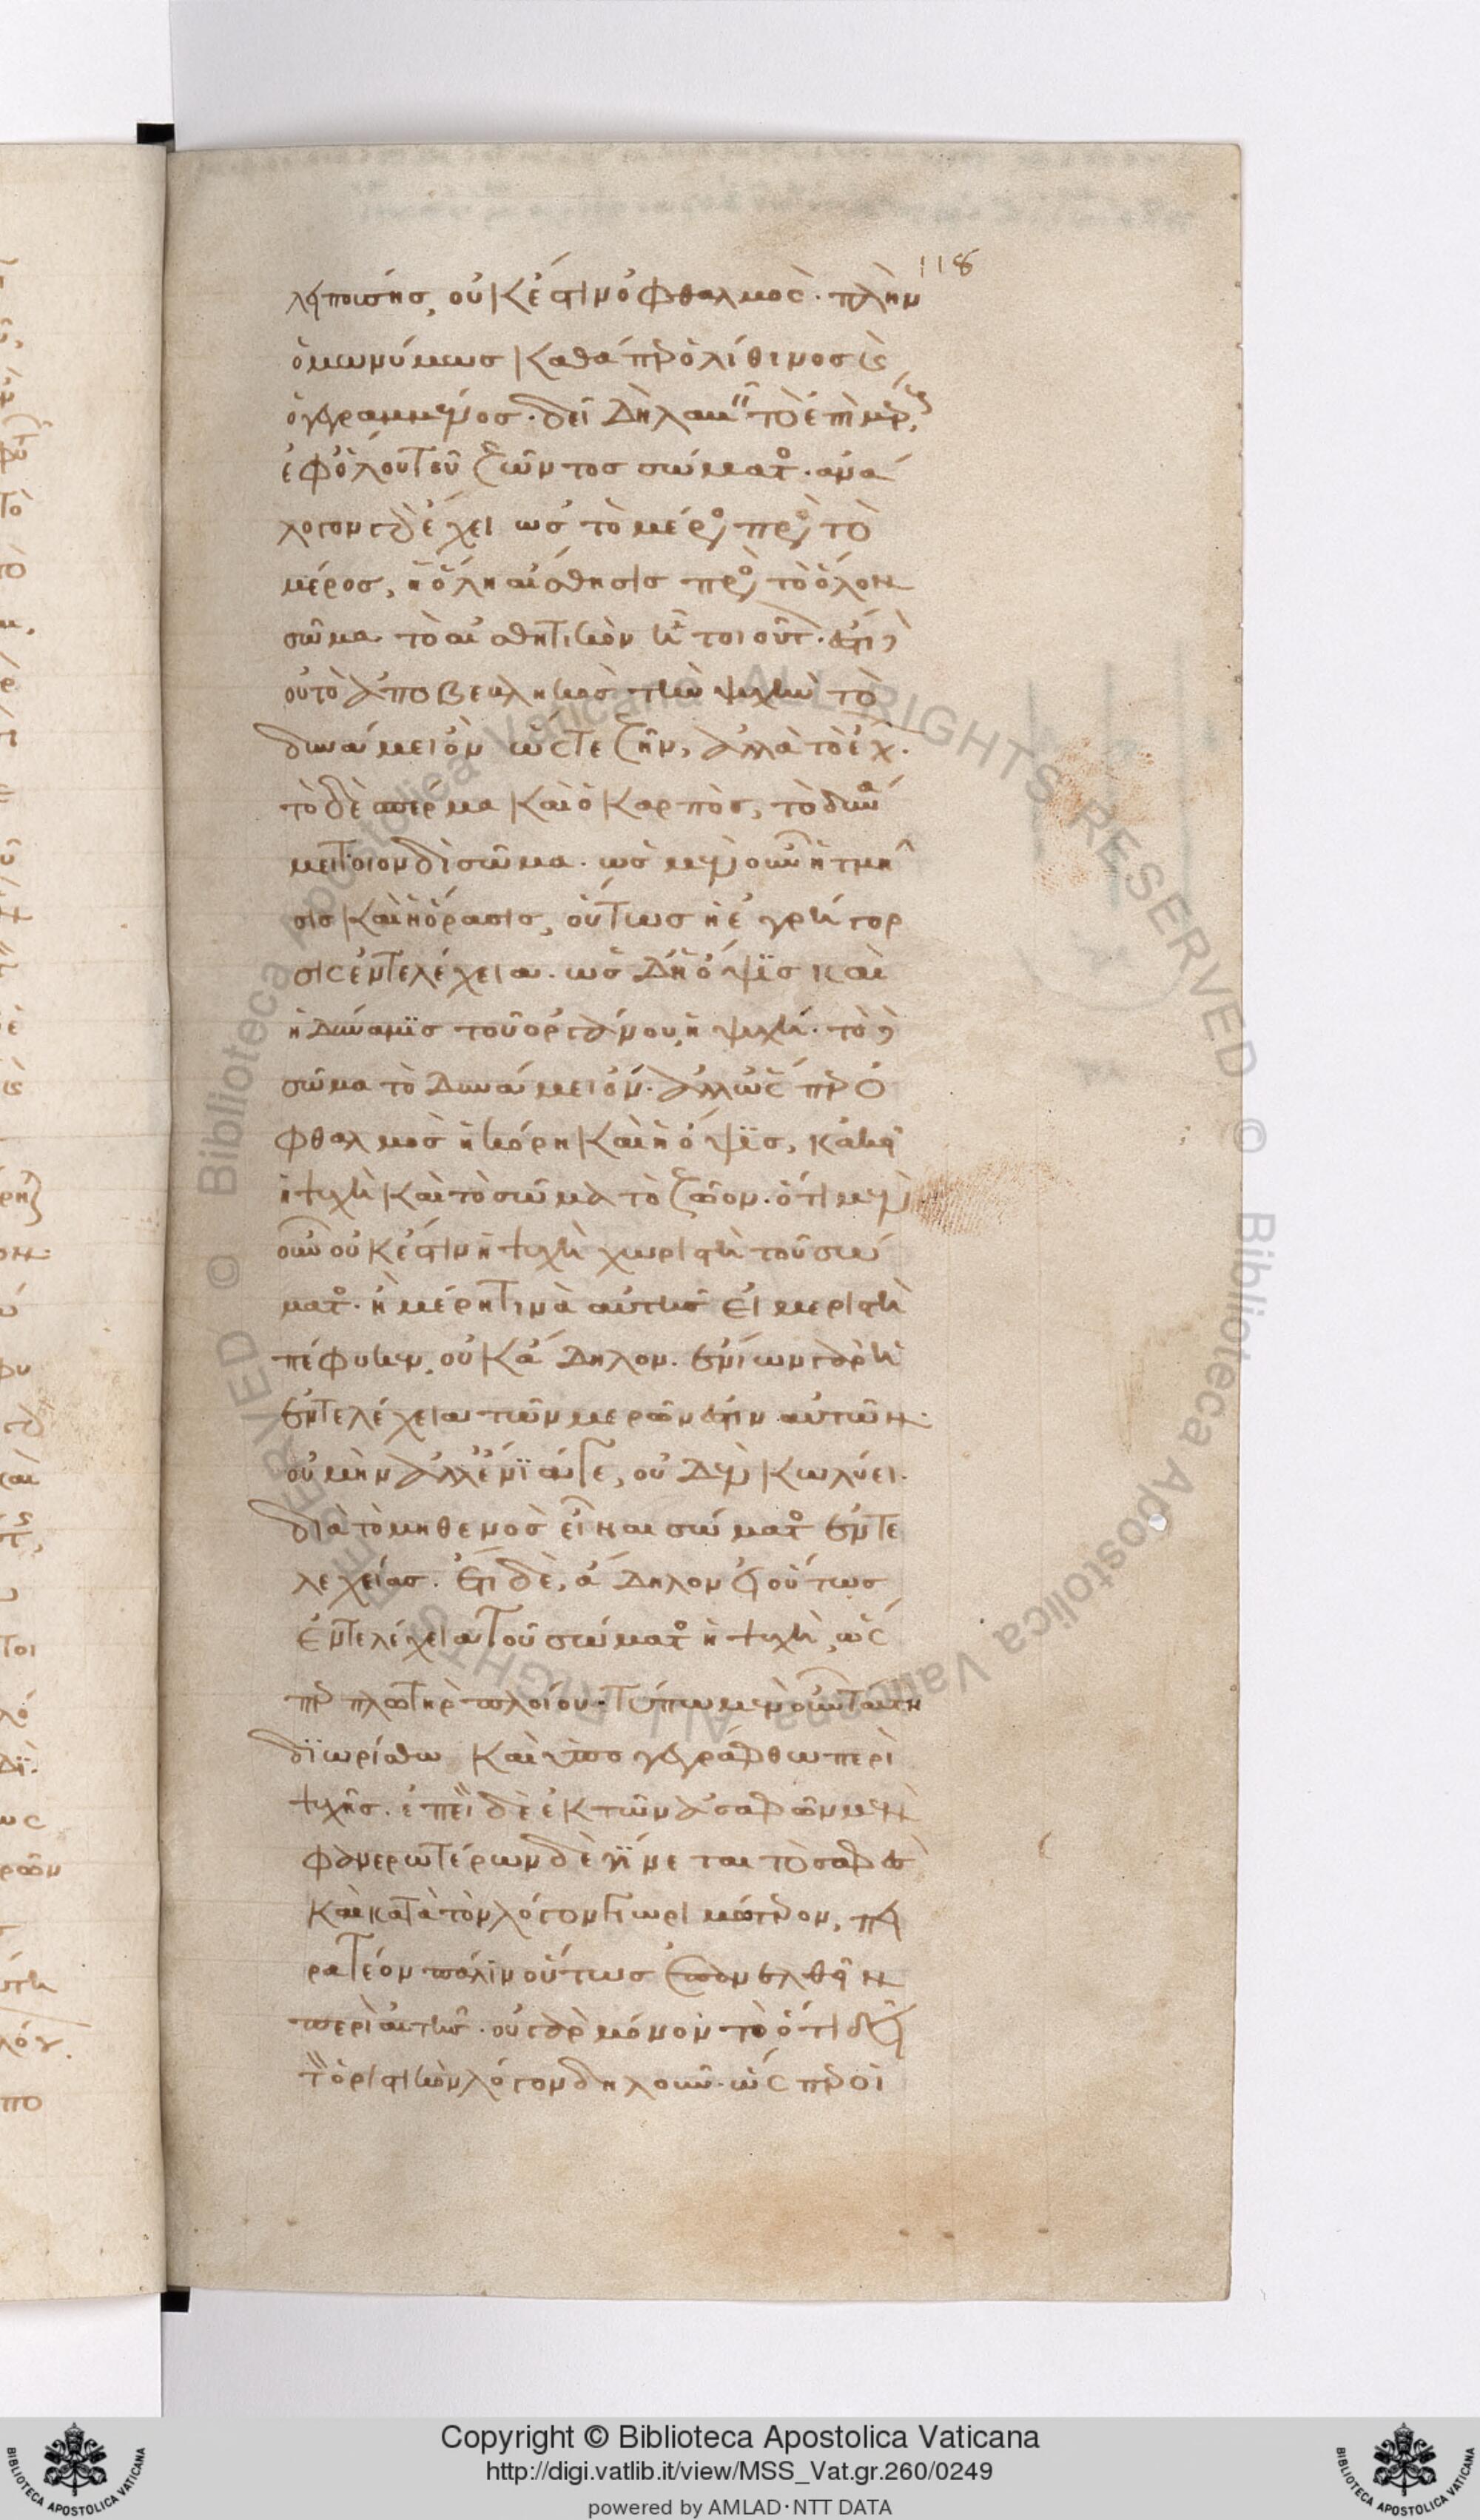 118
λειποισης, οὐκ ἔστιν ὀφθαλμος. πλὴν
ὁμωνύμως καθάπερ ὁ λίθινος καὶ
ὁ γεγραμμένος. δεῖ δὴ λαβεῖν τὸ ἐπὶ μέρους
ἐφ' ὅλου τοῦ ζῶντος σώματος. ἀνά
λογον γὰρ ἔχει ὡς τὸ μέρος πρὸς τὸ
μέρος, ἡ ὅλη αἴσθησις πρὸς τὸ ὅλον
σῶμα τὸ αἰσθητικὸν ᾗ τοιοῦτον. ἔστι δὲ
οὐ τὸ ἀποβεβληκὸς τὴν ψυχὴν τὸ
δυνάμει ὂν ὥστε ζῆν, ἀλλὰ τὸ ἔχον.
τὸ δὲ σπέρμα καὶ ὁ καρπὸς, τὸ δυνά
μει τοιονδὶ σῶμα. ὡς μὲν οὖν ἡ τμῆ
σις καὶ ἡ ὅρασις, οὕτως ἡ ἐγρήγορ
σις ἐντελέχεια. ὡς δὴ ἡ ὄψις καὶ
ἡ δύναμις τοῦ ὀργάνου, ἡ ψυχή. τὸ δὲ
σῶμα τὸ δυνάμει ὄν. ἀλλ' ὥσπερ ὁ
φθαλμὸς ἡ κόρη καὶ ἡ ὄψις, κἀκεῖ
ἡ ψυχὴ καὶ τὸ σῶμα τὸ ζῷον. ὅτι μὲν
οὖν οὐκ ἔστιν ἡ ψυχὴ χωριστὴ τοῦ σώ
ματος. ἢ μέρη τινὰ αὐτῆς εἰ μεριστὴ
πέφυκεν, οὐκ ἄδηλον. ἐνίων γὰρ ἡ
ἐντελέχεια τῶν μερῶν ἐστιν αὐτῶν.
οὐ μὴν ἀλλ' ἔνιά γε, οὐδὲν κωλύει.
διὰ τὸ μηθενὸς εἶναι σώματος ἐντε
λεχείας. ἔτι δὲ, ἄδηλον εἰ οὕτως
ἐντελέχεια τοῦ σώματος ἡ ψυχὴ, ὥσ
περ πλωτὴρ πλοίου. τύπῳ μὲν οὖν ταύτῃ
διωρίσθω καὶ ὑπογεγράφθω περὶ
ψυχῆς. ἐπεὶ δὲ ἐκ τῶν ἀσαφῶν μὲν
φανερωτέρων δὲ γίνεται τὸ σαφὲς
καὶ κατὰ τὸν λόγον γνωριμώτερον, πει
ρατέον πάλιν οὕτως ἐπανελθεῖν
περὶ αὐτῆς. οὐ γὰρ μόνον τὸ ὅτι δεῖ
τὸν ὁριστικὸν λόγον δηλοῦν. ὥσπερ οἱ
Copyright © Biblioteca Apostolica Vaticana
http://digi.vatlib.it/view/MSS_Vat.gr.260/0249
powered by AMLAD·NTT DATA